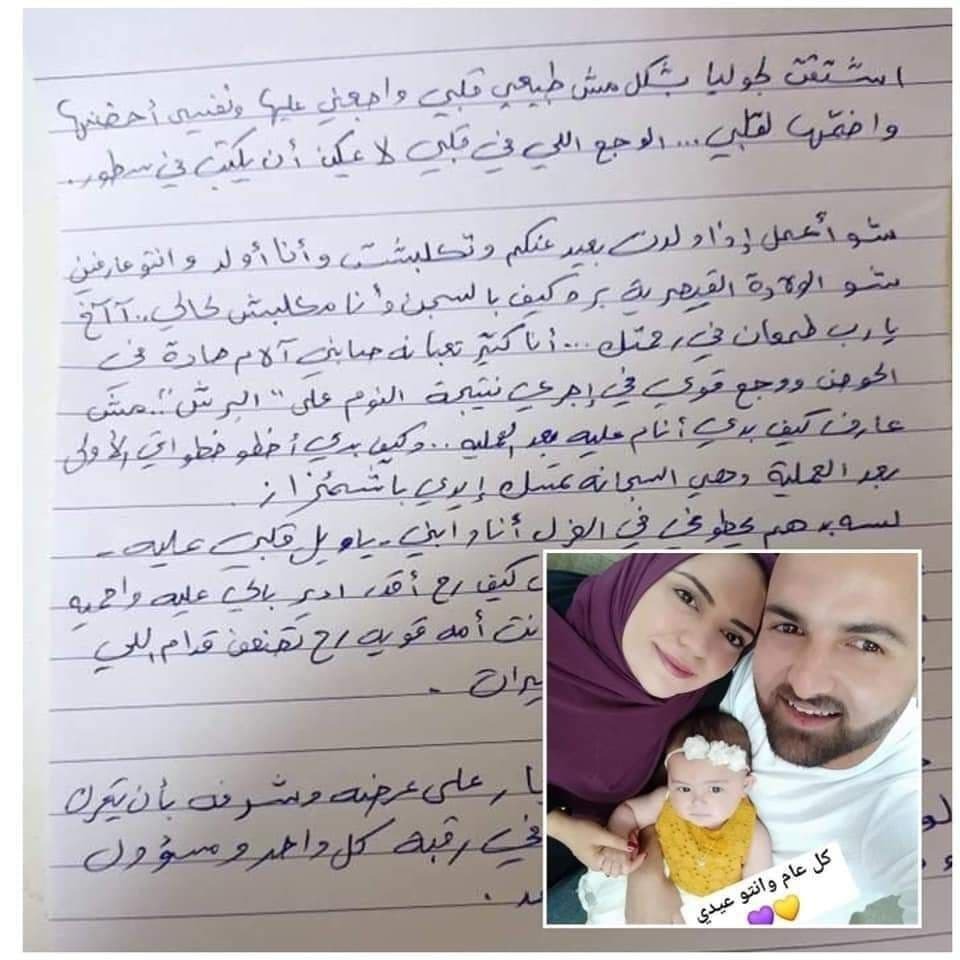 اشتقت لجوليا بشكل مش طبيعي قلبي واجعني عليها ونفسي أحضنها
واضمّها لقلبي... الوجع اللي في قلبي لا يمكن أن يكتب في سطور.
شو أعمل إذا ولدت بعيد عنكم وتكلبشت وأنا أولد وانتو عارفين
شو الولادة القيصرية برة كيف بالسجن وأنا مكلبش لحالي.. آآآخ
يا رب طمعان في رحمتك... أنا كثير تعبانه صابني آلام حادة في
الحوض ووجع قوي في إجري نتيجة النوم على "البرش".. مش
عارف كيف بدي أنام عليه بعد العمليه.. وكيف بدي أخطو خطواتي الأولى
بعد العملية وهي السجانه تمسك إيدي باشمئزاز.
لسه بدهم يحطوني في العزل أنا وابني - ياويل قلبي عليه -
كيف رح أقدر ادير بالي عليه واحميه
أمه قويه رح تضعف قدام اللي
على عرضه وشرفه بأن يتحرك
في رقبة كل واحد ومسؤول
كل عام وانتو عيدي